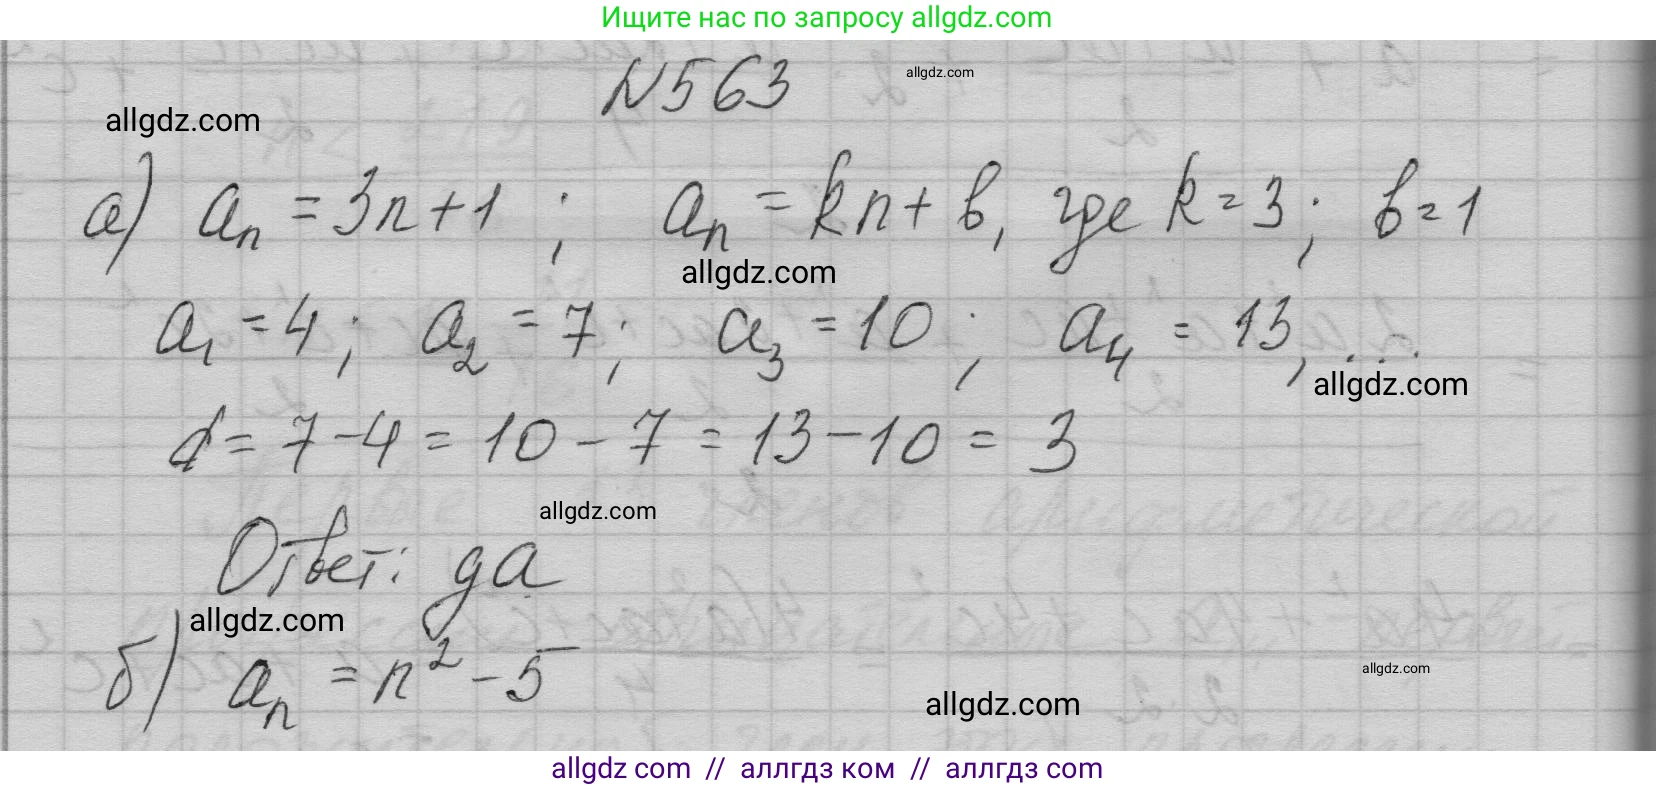 Ищите нас по запросу allgdz.com
N563
allgdz.com
allgdz.com
а) aₙ = 3n + 1 ; aₙ = kn + b, где k = 3 ; b = 1
allgdz.com
a₁ = 4 ; a₂ = 7 ; a₃ = 10 ; a₄ = 13, ...
allgdz.com
d = 7 - 4 = 10 - 7 = 13 - 10 = 3
allgdz.com
Ответ: да
allgdz.com
б) aₙ = n² - 5
allgdz.com
allgdz.com
allgdz com // аллгдз ком // аллгдз com